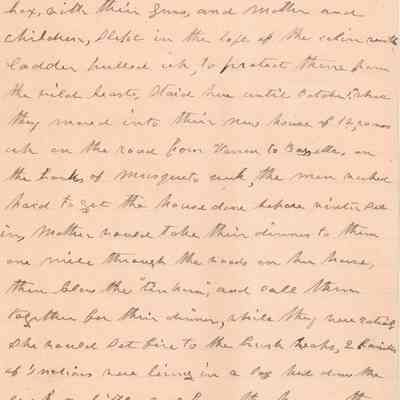 box, with their guns, and Mother and
children, Slept in the loft of the cabin with
ladder pulled up, to protect them from
the wild beasts, Staid here until October, when
they moved into their new house of 12, rooms
up on the road from Vernon to on
the banks of Musqueto creek, the men worked
hard to get the house done before winter Set
in, Mother would take their dinners to them
one mile through the woods on her horse,
then blow the "tin horn", and call them
together for their dinner, while they were eating
She would Set fire to the brush heaps, 2 families
of Indians were living in a log hut down the